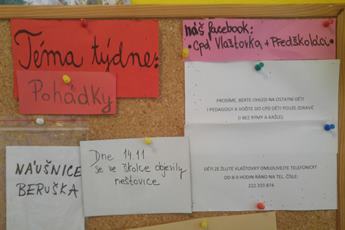 Téma týdne:
Pohádky
náš facebook:
• Cpd Vlaštovka + Předškoláci •
PROSÍME, BERTE OHLED NA OSTATNÍ DĚTI
I PEDAGOGY A VOĎTE DO CPD DĚTI POUZE ZDRAVÉ
(I BEZ RÝMY A KAŠLE).
DĚTI ZE ŽLUTÉ VLAŠTOVKY OMLOUVEJTE TELEFONICKY
DO 8 HODIN RÁNO NA TEL. ČÍSLE:
222 333 874
NAUŠNICE
BERUŠKA
Dne 14.11
se ve školce objevily
neštovice